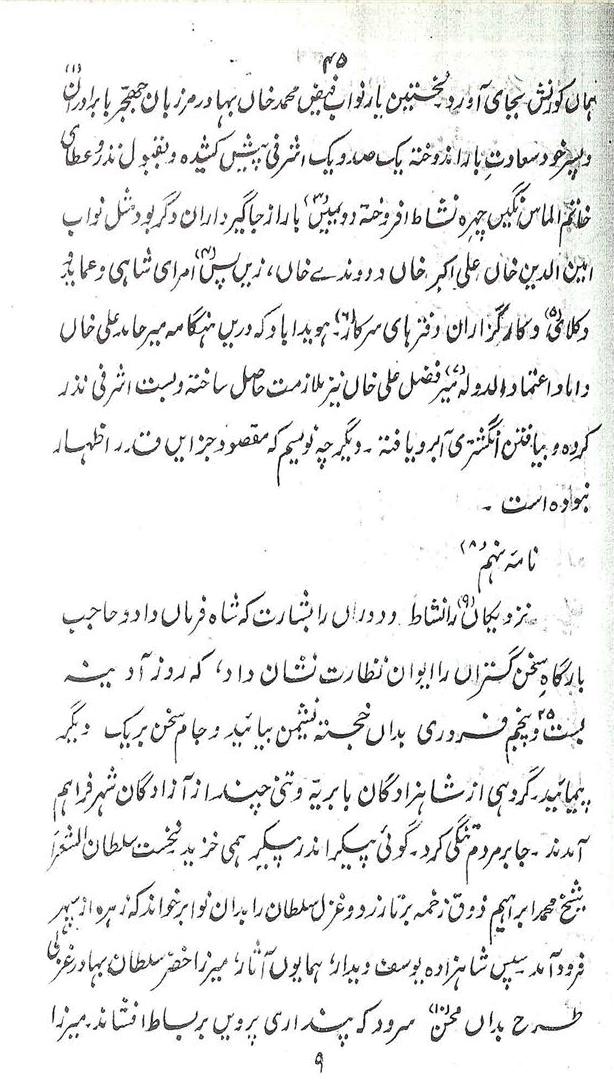 ۴۵
ہماں کورنش بجای آورد نخستین بار نواب فیض محمد خاں بہادر مرزبان جھجّر با برادران (۱)
و پسر خود سعادتِ بار اندوختہ یک صد و یک اشرفی پیش کشیدہ و بقبول نذر و عطای
خاتم الماس نگیں چہرہ نشاط افروختہ دومیں (۳) بار از جاگیر داران دگر بود مثل نواب
امین الدین خاں علی اکبر خاں و دوندے خاں، زیں پس (۴) امرای شاہی و عماید و
وکلای (۵) و کارگزاران دفتر ہای سرکار (۶)۔ ہویدا باد کہ دریں ہنگامہ میر حامد علی خاں
داماد اعتماد الدولہ (۷) میر فضل علی خاں نیز ملازمت حاصل ساختہ و بست اشرفی نذر
کردہ و بیافتن انگشتری آبرو یافتہ ۔ دیگر چہ نویسم کہ مقصود جز ایں قدر اظہار
نبودہ است ۔
نامہ نہم (۸)
نزدیکاں (۹) را نشاط و دوراں را بشارت کہ شاہ فرماں داد و حاجب
بارگاہِ سخن گستراں را ایوان نظارت نشان داد، کہ روز آدینہ
بست ۲۵ و پنجم فروری بداں خجستہ نشیمن بیائید و جام سخن بریک دیگر
پیمائید۔ گروہی از شاہزادگان بابریہ و تنی چند از آزادگان شہر فراہم
آمدند ۔ جا بر مردم تنگی کرد۔ گوئی پیکر اندر پیکر ہمی خزید نخست سلطان الشعرا
شیخ محمد ابراہیم ذوق زخمہ بر تار زد و غزل سلطان را بدان نوا برخواند کہ زہرہ از سپہر
فرود آمد سپس شاہزادہ یوسف دیدار، ہمایوں آثار، میرزا خضر سلطان بہادر غزلی
طرح بداں لحن (۱۰) سرود کہ پنداری پرویں بر بساط افشاند میرزا
۹